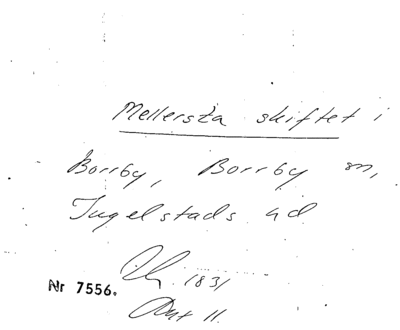 Mellersta skiftet i
Borrby, Borrby sn,
Ingelstads hd
1831
Nr 7556.
Akt 11.